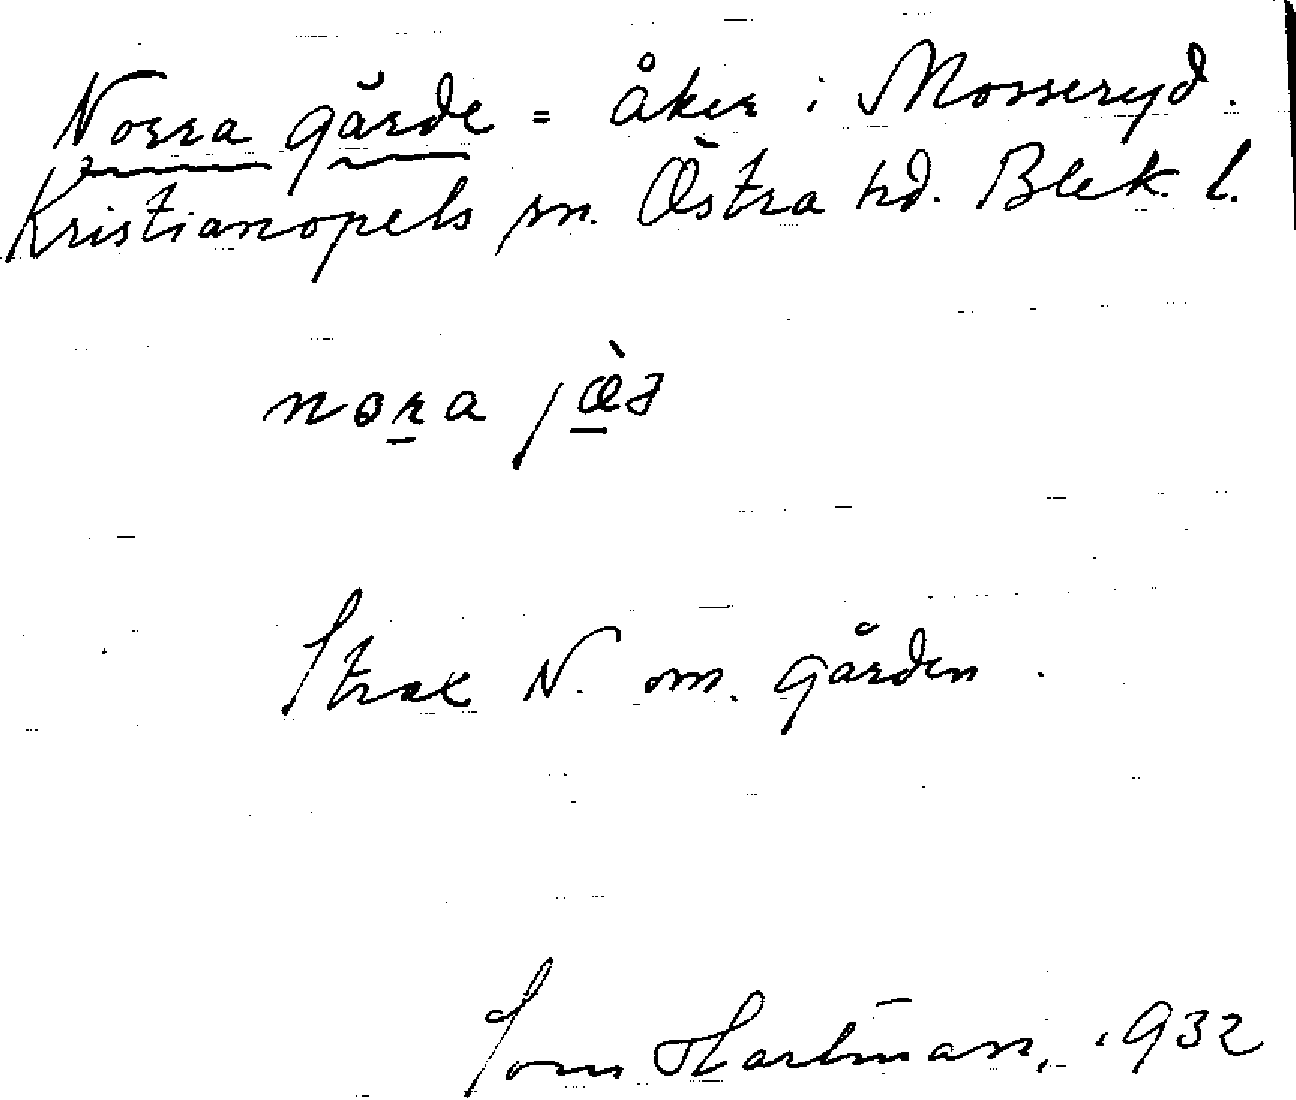 Norra gärde = åker i Mosseryd.
Kristianopels sn. Östra hd. Blek. l.
nora jæ̀ɜ
Strax N. om. gården.
Tom Hartman, 1932